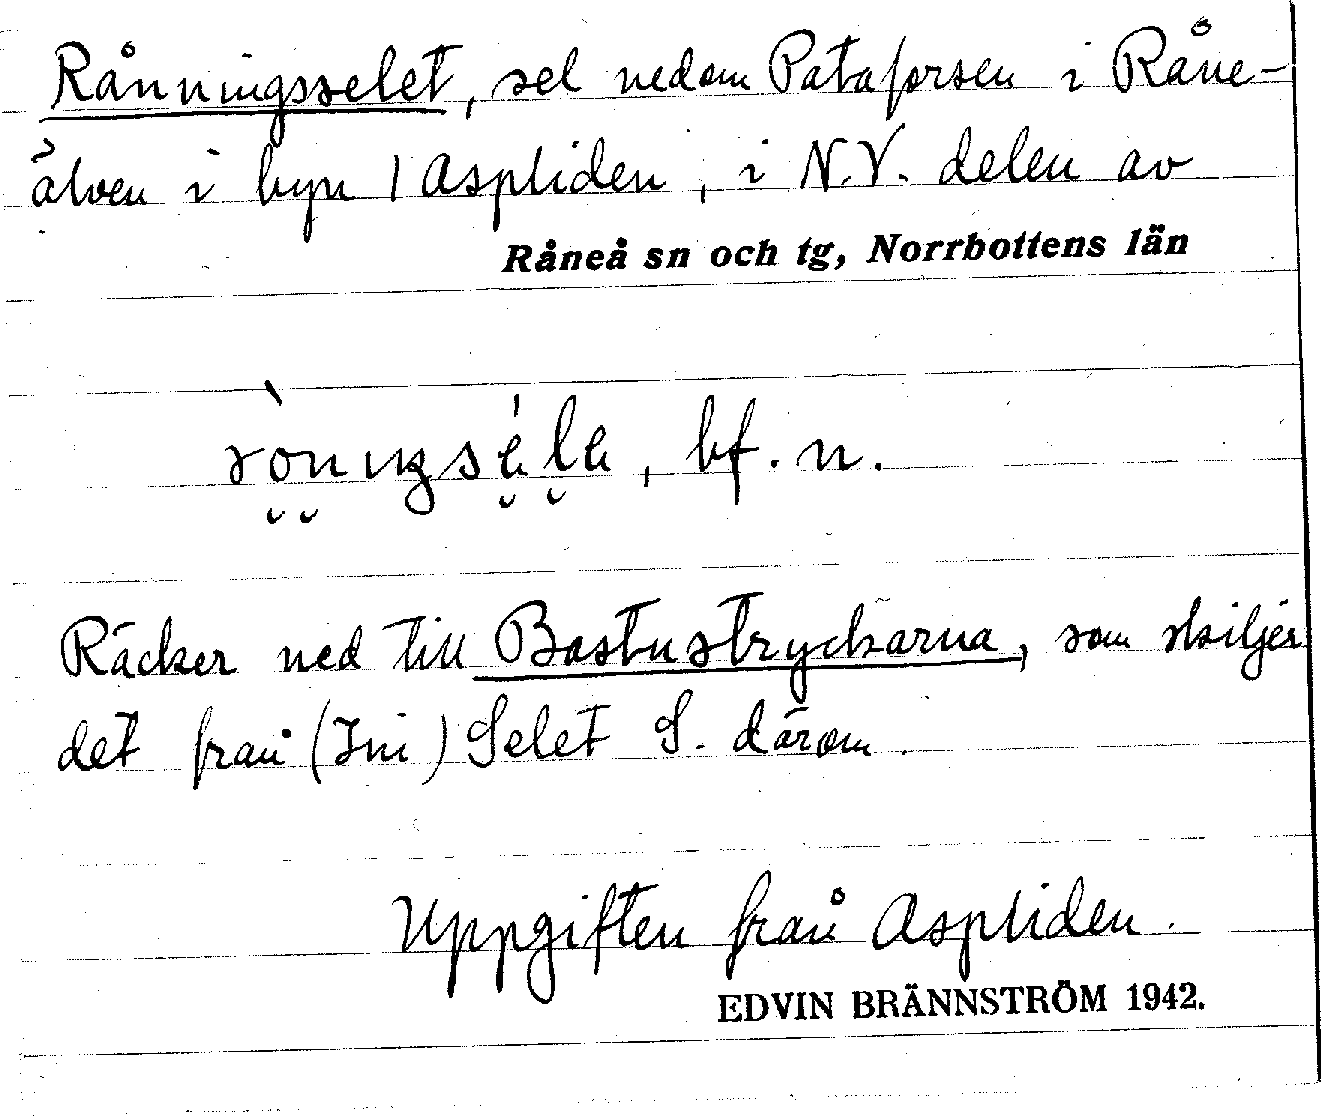 Rånningsselet, sel nedom Pataforsen i Råne-
älven i byn 1 Aspliden, i N.V. delen av
Råneå sn och tg, Norrbottens län
bf. n.
Räcker ned till Bastustryckarna, som skiljer
det från (Ini) Selet S. därom.
Uppgiften från Aspliden.
EDVIN BRÄNNSTRÖM 1942.